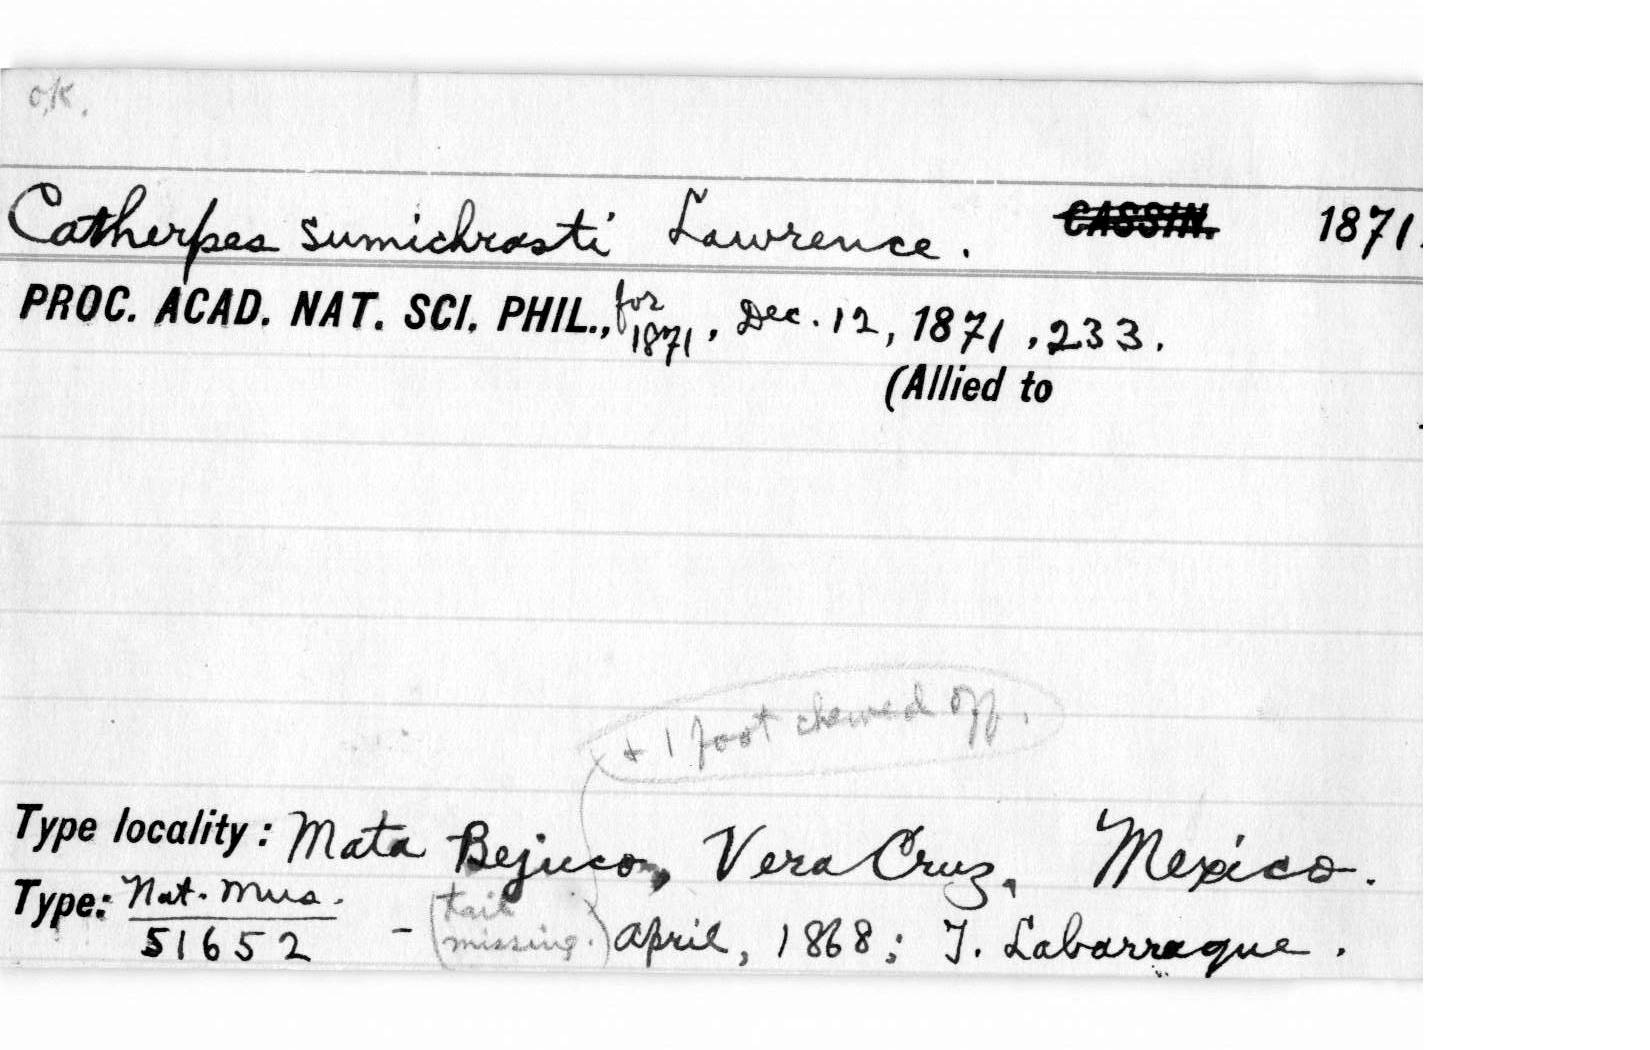 o.k.
Catherpes sumichrasti Lawrence. CASSIN. 1871.
PROC. ACAD. NAT. SCI. PHIL., for 1871, Dec. 12, 1871, 233.
(Allied to
+ 1 foot chewed off.
Type locality: Mata Bejuco, Vera Cruz, Mexico.
Type: Nat. Mus. 51652 - (tail missing.) April, 1868; F. Labarraque.